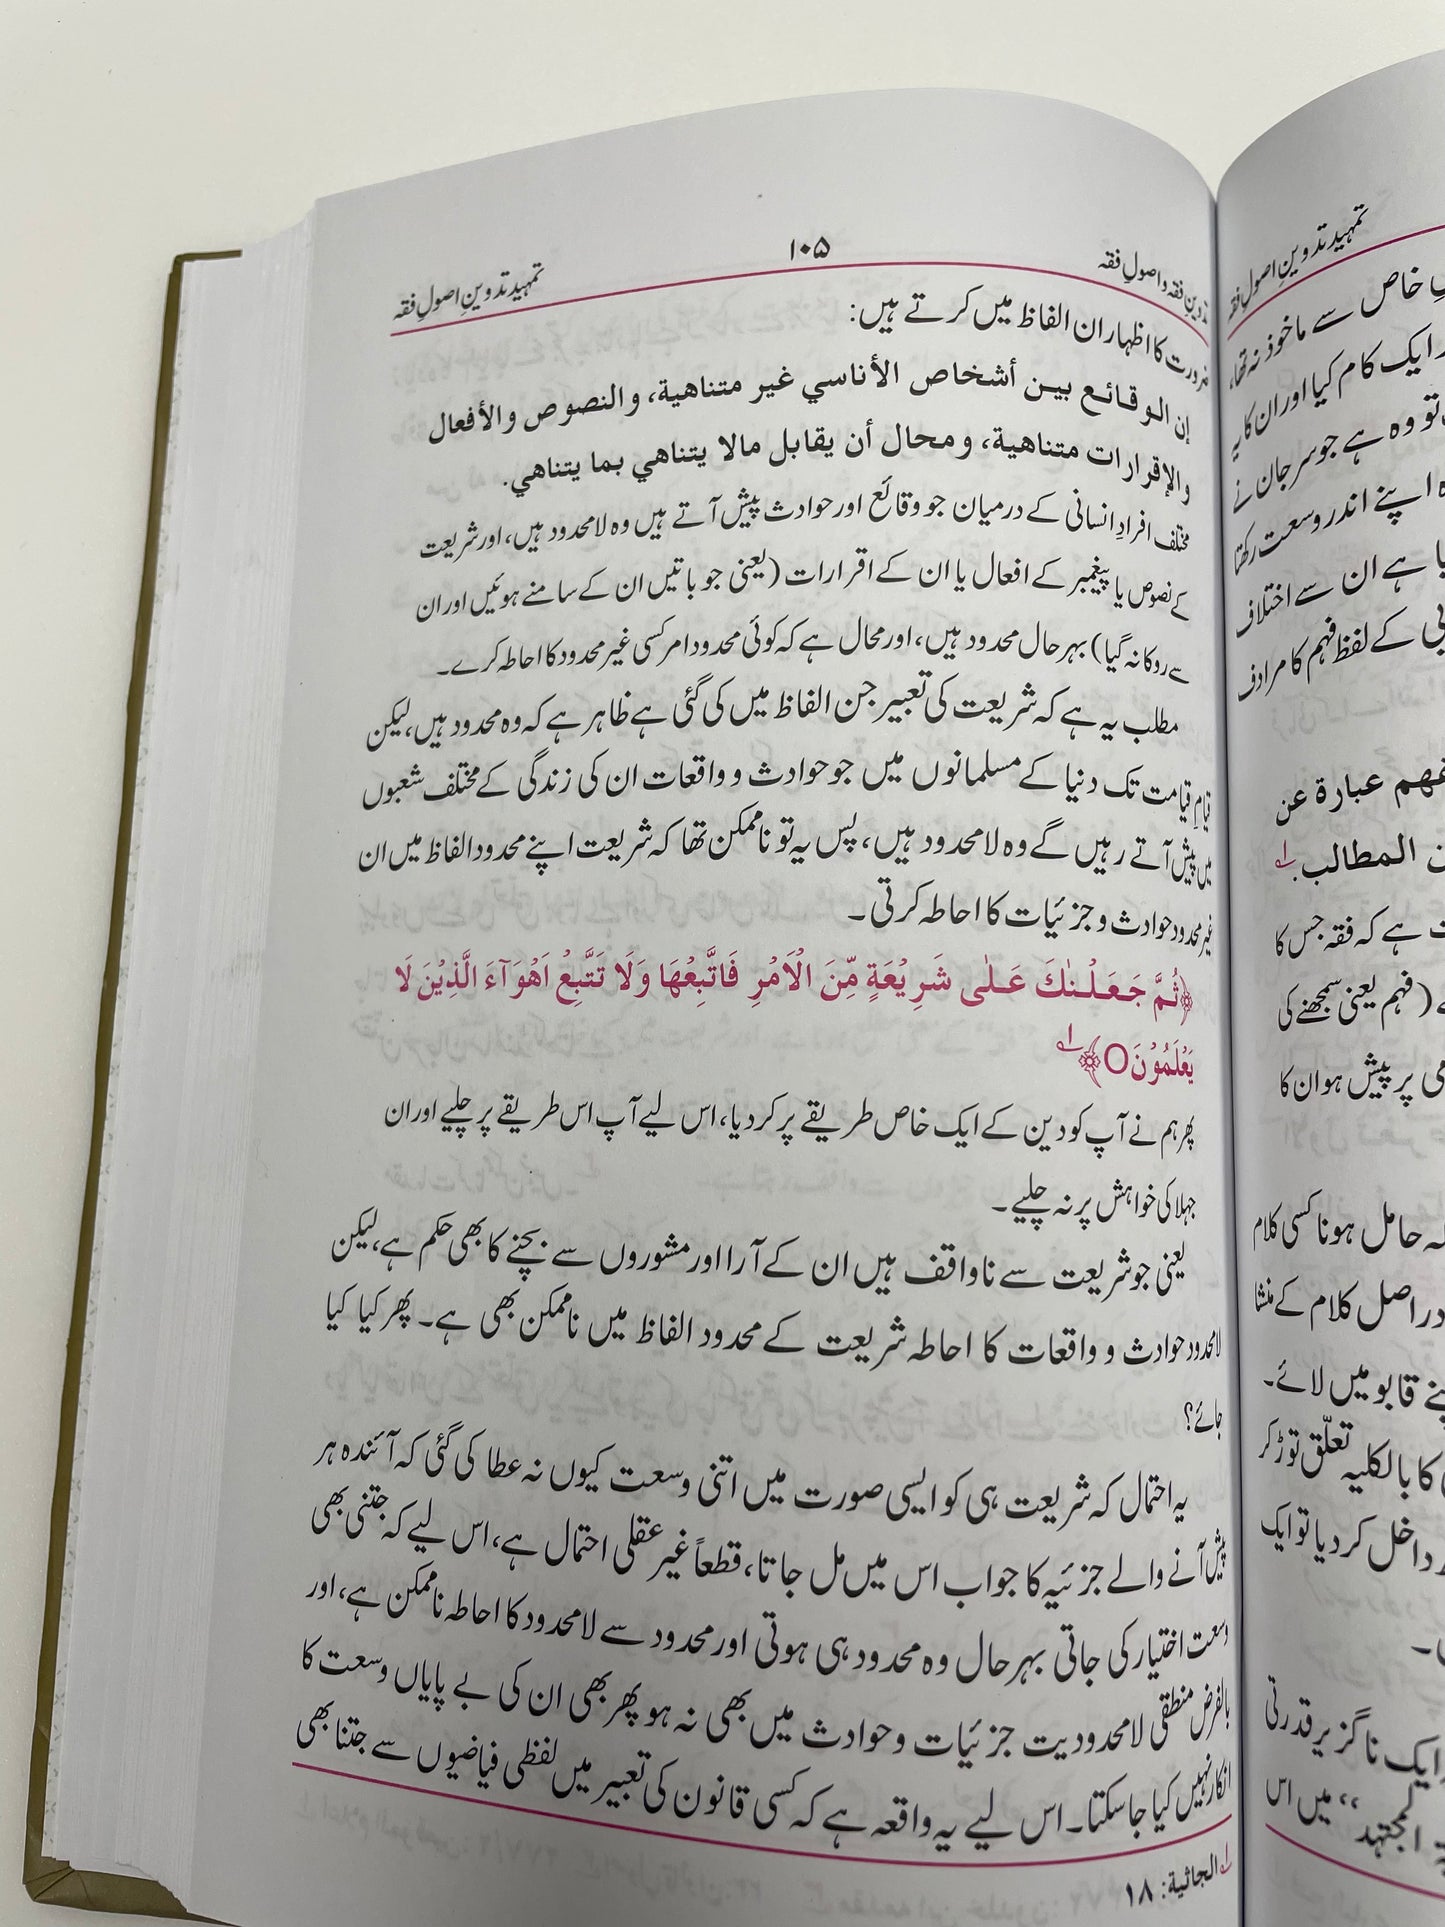 تدوینِ فقہ و اصولِ فقہ
۱۰۵
تمہید تدوینِ اصولِ فقہ
ضرورت کا اظہار ان الفاظ میں کرتے ہیں:
إن الوقائع بین أشخاص الأناسي غیر متناهیة، والنصوص والأفعال
والإقرارات متناهیة، ومحال أن یقابل مالا یتناهي بما یتناهي.
مختلف افرادِ انسانی کے درمیان جو وقائع اور حوادث پیش آتے ہیں وہ لامحدود ہیں، اور شریعت
کے نصوص یا پیغمبر کے افعال یا ان کے اقرارات (یعنی جو باتیں ان کے سامنے ہوئیں اور ان
سے روکا نہ گیا) بہرحال محدود ہیں، اور محال ہے کہ کوئی محدود امر کسی غیر محدود کا احاطہ کرے۔
مطلب یہ ہے کہ شریعت کی تعبیر جن الفاظ میں کی گئی ہے ظاہر ہے کہ وہ محدود ہیں، لیکن
قیامِ قیامت تک دنیا کے مسلمانوں میں جو حوادث و واقعات ان کی زندگی کے مختلف شعبوں
میں پیش آتے رہیں گے وہ لامحدود ہیں، پس یہ تو ناممکن تھا کہ شریعت اپنے محدود الفاظ میں ان
غیر محدود حوادث و جزئیات کا احاطہ کرتی۔
﴿ثُمَّ جَعَلْنٰكَ عَلٰى شَرِيْعَةٍ مِّنَ الْاَمْرِ فَاتَّبِعْهَا وَلَا تَتَّبِعْ اَهْوَآءَ الَّذِيْنَ لَا
يَعْلَمُوْنَO﴾ ۱؎
پھر ہم نے آپ کو دین کے ایک خاص طریقے پر کر دیا، اس لیے آپ اس طریقے پر چلیے اور ان
جہلا کی خواہش پر نہ چلیے۔
یعنی جو شریعت سے ناواقف ہیں ان کے آرا اور مشوروں سے بچنے کا بھی حکم ہے، لیکن
لامحدود حوادث و واقعات کا احاطہ شریعت کے محدود الفاظ میں ناممکن بھی ہے۔ پھر کیا کیا
جائے؟
یہ احتمال کہ شریعت ہی کو ایسی صورت میں اتنی وسعت کیوں نہ عطا کی گئی کہ آئندہ ہر
پیش آنے والے جزئیہ کا جواب اس میں مل جاتا، قطعاً غیر عقلی احتمال ہے، اس لیے کہ جتنی بھی
وسعت اختیار کی جاتی بہرحال وہ محدود ہی ہوتی اور محدود سے لامحدود کا احاطہ ناممکن ہے، اور
بالفرض منطقی لامحدودیت جزئیات و حوادث میں بھی نہ ہو پھر بھی ان کی بے پایاں وسعت کا
انکار نہیں کیا جاسکتا۔ اس لیے یہ واقعہ ہے کہ کسی قانون کی تعبیر میں لفظی فیاضیوں سے جتنا بھی
۱؎ الجاثية: ۱۸
تمہید تدوینِ اصولِ فقہ
خاص سے ماخوذ نہ تھا،
ایک کام کیا اور ان کا یہ
تو وہ ہے جو سرجان نے
اپنے اندر وسعت رکھتا
ہے ان سے اختلاف
کے لفظ فہم کا مرادف
عبارة عن
المطالب. ۱؎
ہے کہ فقہ جس کا
(فہم یعنی سمجھنے کی
پر پیش ہو ان کا
حامل ہونا کسی کلام
دراصل کلام کے منشا
قابو میں لائے۔
کا بالکلیہ تعلّق توڑ کر
داخل کر دیا تو ایک
ایک ناگزیر قدرتی
المجتہد“ میں اس